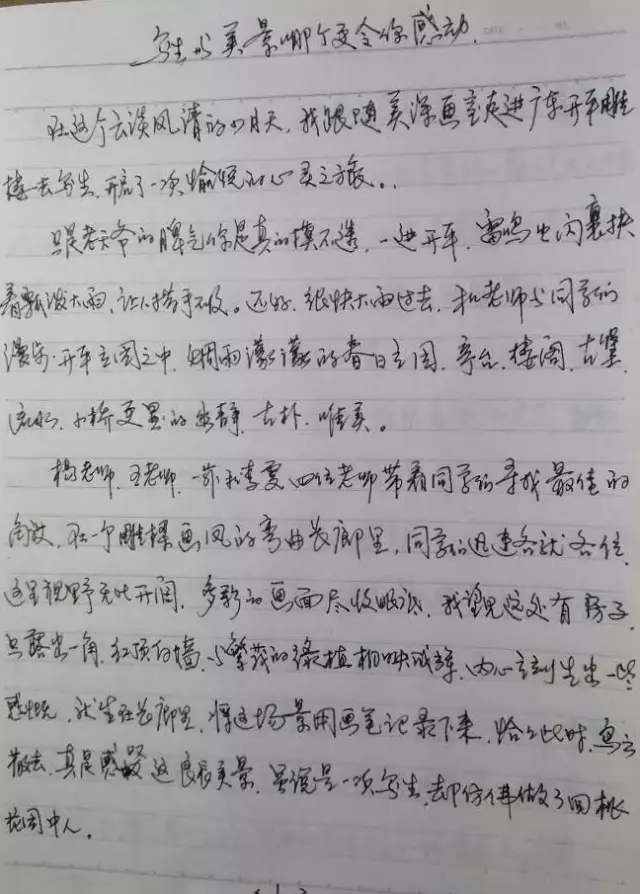 写生与美景哪个更令你感动.
在这个云淡风清的4月天,我跟随美深画室走进广东开平雕
楼去写生,开启了一次愉悦的心灵之旅..
只是老天爷的脾气你是真的摸不透,一进开平,雷鸣电闪裹挟
着瓢泼大雨,让人措手不及。还好,很快大雨过去,和老师与同学们
漫步开平立园之中,烟雨濛濛的春日立园,亭台,楼阁,古堡
流水,小桥更显的幽静,古朴,唯美。
杨老师,王老师,和李雯四位老师带着同学们寻找最佳的
角度,在一个雕楼画风的弯曲长廊里,同学们迅速各就各位,
这里视野无比开阔,多彩的画面尽收眼底,我望见远处有房子,
只露出一角,红顶白墙,与繁茂的绿植相映成辉,内心立刻生出一些
感慨,就坐在长廊里,将这场景用画笔记录下来,恰好此时,乌云
散去,真是感叹这良辰美景,虽说是一次写生,却仿佛做了回桃
花园中人。